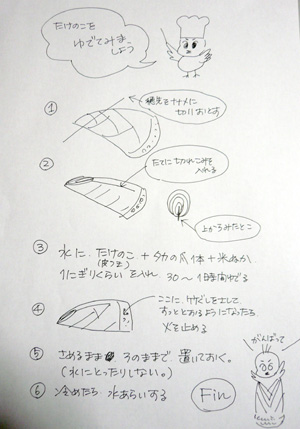 たけのこを
ゆでてみましょう
①
穂先をナナメに
切りおとす
②
たてに切れこみを
入れる
上からみたとこ
③ 水に、たけのこ + タカの爪1本 + 米ぬか
(皮つき)
1にぎりくらい を入れ、30〜1時間ゆでる
④
ここに、竹ぐしをさして
すっととおるようになったら
火を止める
⑤ さめるまま そのままで 置いておく。
(水にとったりしない。)
⑥ 冷めたら、水あらいする
Fin
がんばって